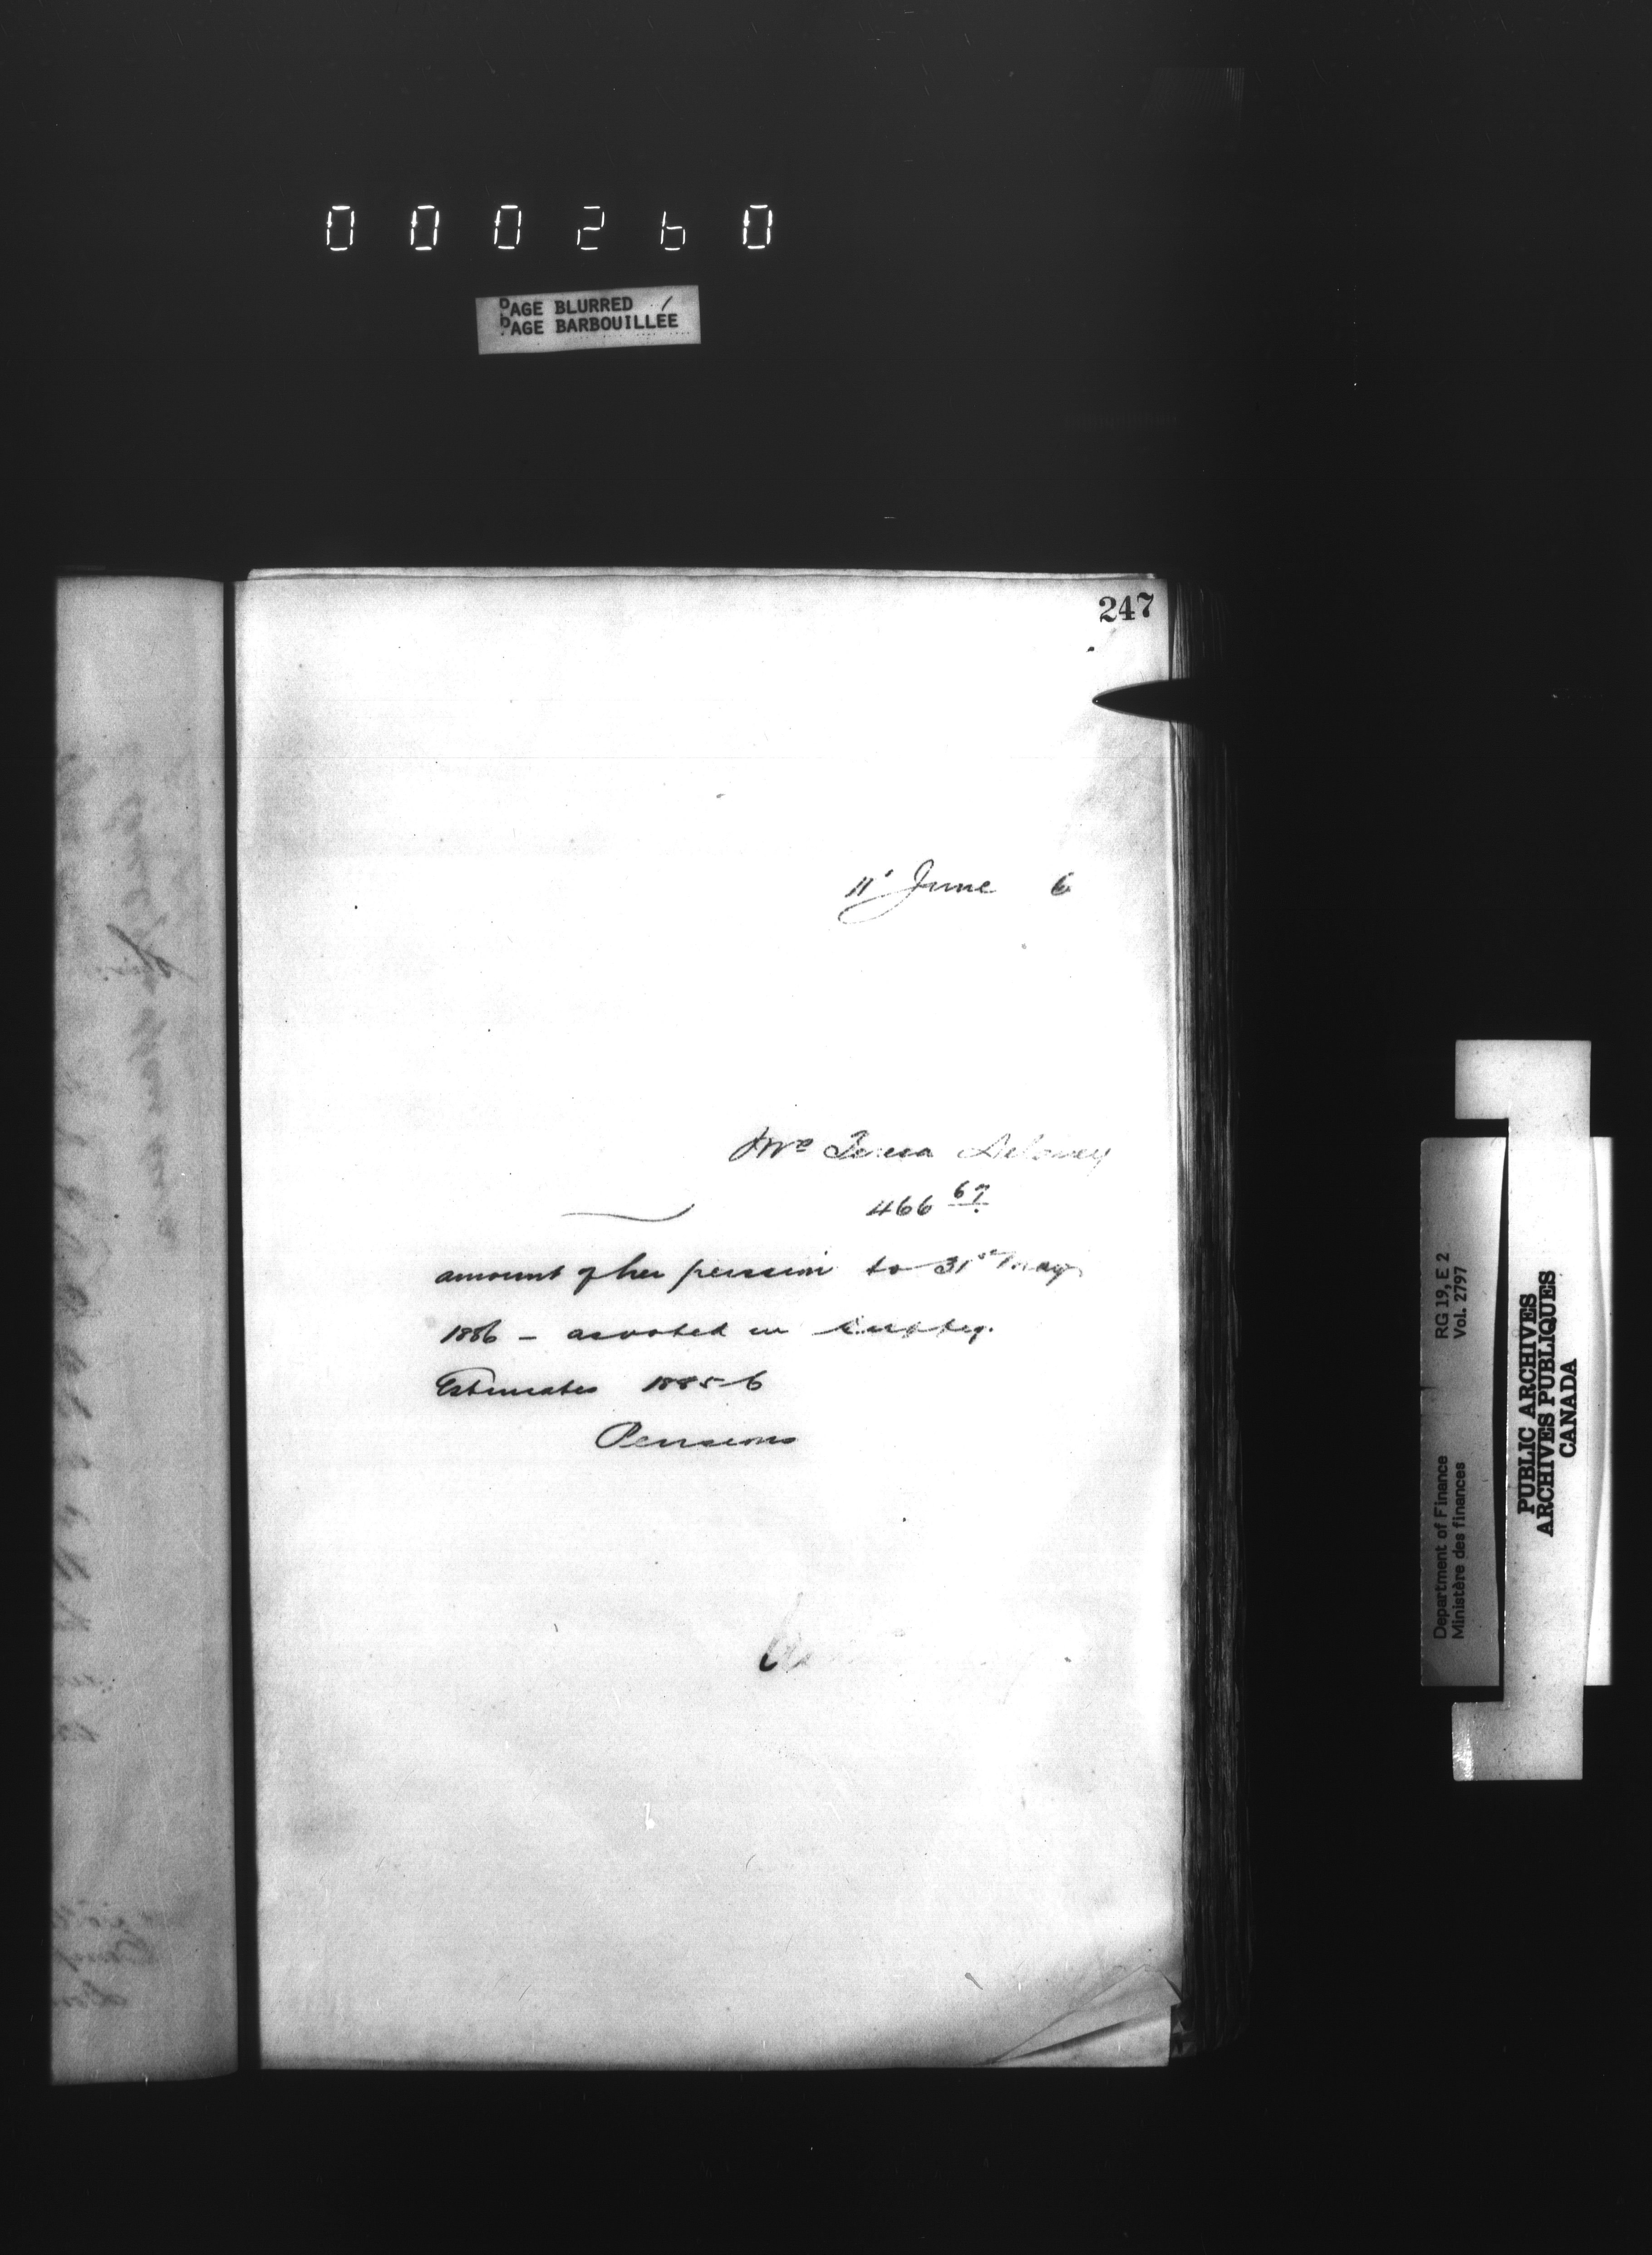 000260
PAGE BLURRED
PAGE BARBOUILLÉE
247
11' June 6
Mrs Teresa Delaney
466 67
amount of her pension to 31st May
1886 – as voted in Supply.
Estimates 1885-6
Pensions
Department of Finance RG 19, E 2
Ministère des finances Vol. 2797
PUBLIC ARCHIVES
ARCHIVES PUBLIQUES
CANADA